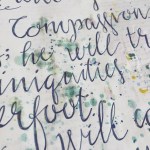 compassion
; he will tr
iniquities
erfoot.
will c